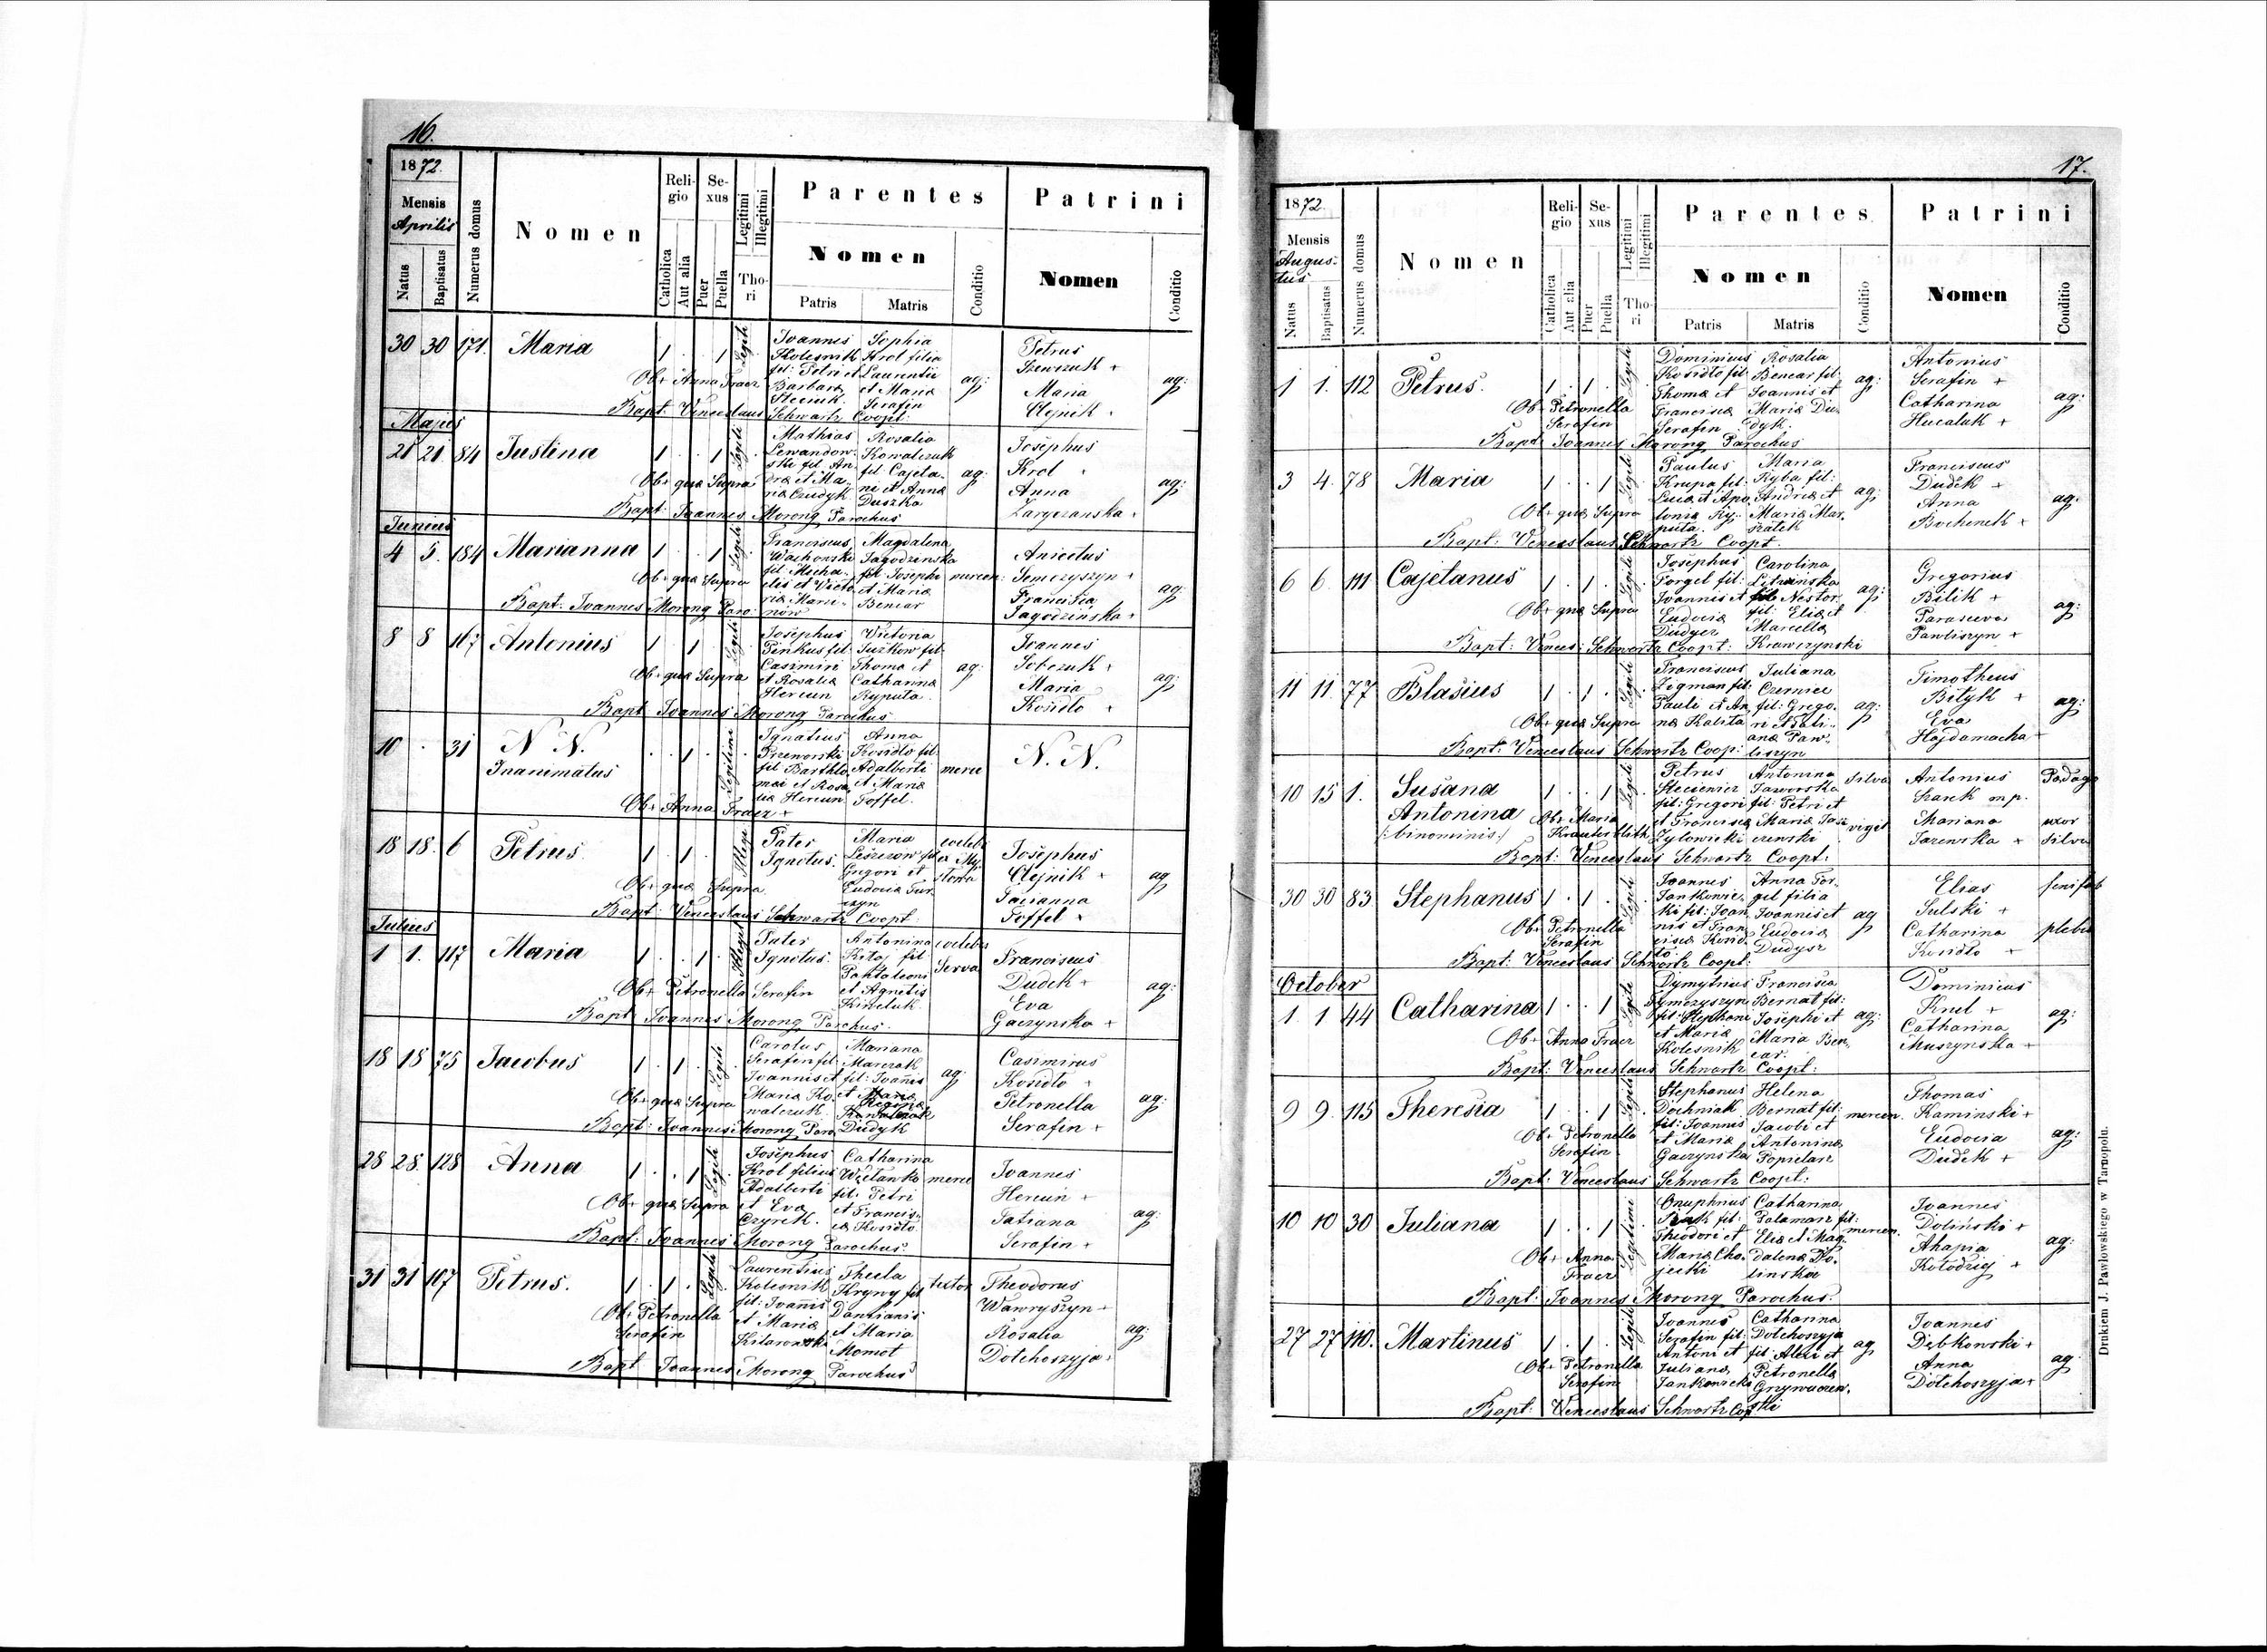 16.
1872.
Mensis
Aprilis
Natus
Baptisatus
Numerus domus
Nomen
Religio
Catholica
Aut alia
Sexus
Puer
Puella
Legitimi
Illegitimi
Thori
Parentes
Nomen
Patris
Matris
Conditio
Patrini
Nomen
Conditio
30 30 171. Maria 1 . . 1 Legiti
Joannes Kolesnik fil: Petri et Barbara
Sophia Krol filia Laurentii et Maria Serafin
ag:
Petrus Szewczuk +
Maria Olejnik .
ag:
Ob+ Anna Fracz
Bapt: Venceslaus Schwartz Coopt:
Majus
21 21 84 Justina 1 . . 1 Legiti
Mathias Lewandowski fil. Andrea et Maria Czudyk
Rosalia Kowalczuk fil: Cajetani et Anna Duszka
ag:
Josephus Krol
Anna
ag:
Ob+ qua Supra
Bapt: Joannes Morong Parochus
Junius
4 5. 184 Marianna 1 . . 1 Legiti
Franciscus fil: Michaelis et Victoria
Magdalena Jagodzinska fil Josephi et Maria Benear
mercen:
Anicetus Semczyszyn +
Francisca Jagodzinska +
ag:
Ob+ qua Supra
Bapt: Joannes Morong Paro:
8 8 167 Antonius 1 . 1 . Legiti
Josephus Pinkus fil: Casimiri et Rosalia Hercun
Victoria Juzkow fil: Thoma et Catharina Ryputa
ag:
Joannes Sobczuk +
Maria Kosidlo +
ag:
Ob+ qua Supra
Bapt Joannes Morong Parochus
10 . 31 N N. Inanimatus . . 1 . Legitimi
Ignatius fil Bartholomaei et Rosalia Hercun
Anna Kosidlo fil: Adalberti et Maria Foffel.
merce
N. N.
Ob+ Anna Fracz +
18 18. 6 Petrus 1 . 1 . Illegi
Pater Ignotus.
Maria Leszczow fil Gregori et Eudocia
Josephus Olejnik +
Foffel +
ag
Ob+ qua Supra
Bapt: Venceslaus Schwartz Coopt:
Julius
1 1. 117 Maria 1 . . 1 . Illegit
Pater Ignotus.
Antonina fil Pantaleoni et Agnetis
coelebs Serva
Franciscus Dudek +
Eva Gaczynska +
ag:
Ob+ Petronella Serafin
Bapt Joannes Morong Parochus
18 18 75 Jacobus 1 . 1 . Legiti
Carolus Serafin fil: Joannis et Maria Kowalczuk
Mariana Marczak fil: Joannis et Regina Dudyk
ag:
Casimirus Kosidlo +
Petronella Serafin +
ag:
Ob+ qua Supra
Bapt: Joannes Morong Paro
28 28. 128 Anna 1 . . 1 . Legiti
Josephus Krol filius Adalberti et Eva Czyrek.
Catharina fil: Petri et Francisca Kosidlo
merce
Joannes Hercun +
Tatiana Serafin +
ag:
Ob+ qua Supra
Bapt: Joannes Morong Parochus.
31 31 107 Petrus. 1 . 1 . Legiti
Laurentius Kolesnik fil: Joannis et Maria
Thecla Krywy fil Damiani et Maria Momot
textor
Theodorus Wawryszyn +
Rosalia Dolchoszyja +
ag:
Ob+ Petronella Serafin
Bapt Joannes Morong Parochus
17.
1872.
Mensis
Augustus
Natus
Baptisatus
Numerus domus
Nomen
Religio
Catholica
Aut alia
Sexus
Puer
Puella
Legitimi
Illegitimi
Thori
Parentes
Nomen
Patris
Matris
Conditio
Patrini
Nomen
Conditio
1 1. 112 Petrus. 1 . 1 . Legiti
Dominicus Kosidlo fil: Thoma et Francisca Serafin
Rosalia Benear fil: Joannis et Maria Dudyk.
ag:
Antonius Serafin +
Catharina Hucaluk +
ag:
Ob+ Petronella Serafin
Bapt: Joannes Morong Parochus
3 4. 78 Maria 1 . . 1 Legiti
Paulus Krupa fil: Luca et Apolonia Ryputa.
Maria Ryba fil: Andrea et Maria Marszalek
ag:
Franciscus Dudek +
Anna Bochenek +
ag:
Ob+ qua Supra
Bapt: Venceslaus Schwartz Coopt.
6 6. 111 Cajetanus 1 . 1 . Legiti
Josephus Torgel fil: Joannis et Eudocia Dudycz
Carolina fil: Elia et Marcella Krawczynski
ag:
Gregorius Bilik +
Parasceva Pawliszyn +
ag:
Ob+ qua Supra
Bapt: Vences: Schwartz Coopt:
11 11. 77 Blasius 1 . 1 . Legiti
Franciscus Zigman fil: Pauli et Anna Kalita
Juliana Czerniec fil: Gregori et Juliana Pawliszyn
ag:
Timotheus Bityk +
Eva Hajdamacha +
ag:
Ob+ qua Supra
Bapt: Venceslaus Schwartz Coop:
10 15 1. Susana Antonina /:binominis:/ 1 . . 1 . Legiti
Petrus fil: Gregori et Francisca
Antonina Jaworska fil: Petri et Maria
silva vigil
Antonius mp.
Mariana
uxor silva
Ob+ Maria
Bapt: Venceslaus Schwartz Coopt:
30 30 83 Stephanus 1 . 1 . Legiti
Joannes Jankowicki fil: Joannis et Francisca Kosidlo
Anna Torgel filia Joannis et Eudocia Dudycz
ag
Elias Sulski +
Catharina Kosidlo +
Ob+ Petronella Serafin
Bapt: Venceslaus Schwartz Coopt:
October
1. 1 44 Catharina 1 . . 1 Legiti
Dymytrius Tymczyszyn fil: Stephani et Maria Kolesnik
Francisca Bernat fil: Josephi et Maria Benear.
ag:
Dominicus Knel +
Catharina Muszynska +
ag:
Ob+ Anna Fracz
Bapt: Venceslaus Schwartz Coopt:
9 9. 115 Theresia 1 . . 1 Legiti
Stephanus Dochniak fil: Joannis et Maria Gaczynska
Helena Bernat fil: Jacobi et Antonina Popielarz
mercen.
Thomas Kaminski +
Eudocia Dudek +
ag:
Ob+ Petronella Serafin
Bapt: Venceslaus Schwartz Coopt:
10 10 30 Juliana 1 . . 1 Legitimi
Onuphrius fil: Theodori et Maria Chojecki
Catharina Palamarz fil: Elia et Magdalena Dolinska
mercen.
Joannes Dolinski +
Ahapia Kolodzij +
ag:
Ob+ Anna Fracz
Bapt: Joannes Morong Parochus.
27 27 110. Martinus 1 . 1 . Legiti
Joannes Serafin fil: Antoni et Juliana Jankowicki
Catharina Dolchoszyja fil Alexi et Petronella Grzywaczewski
ag
Joannes Dębkowski +
Anna Dolchoszyja +
ag
Ob+ Petronella Serafin
Bapt: Venceslaus Schwartz Coop
Drukiem J. Pawłowskiego w Tarnopolu.